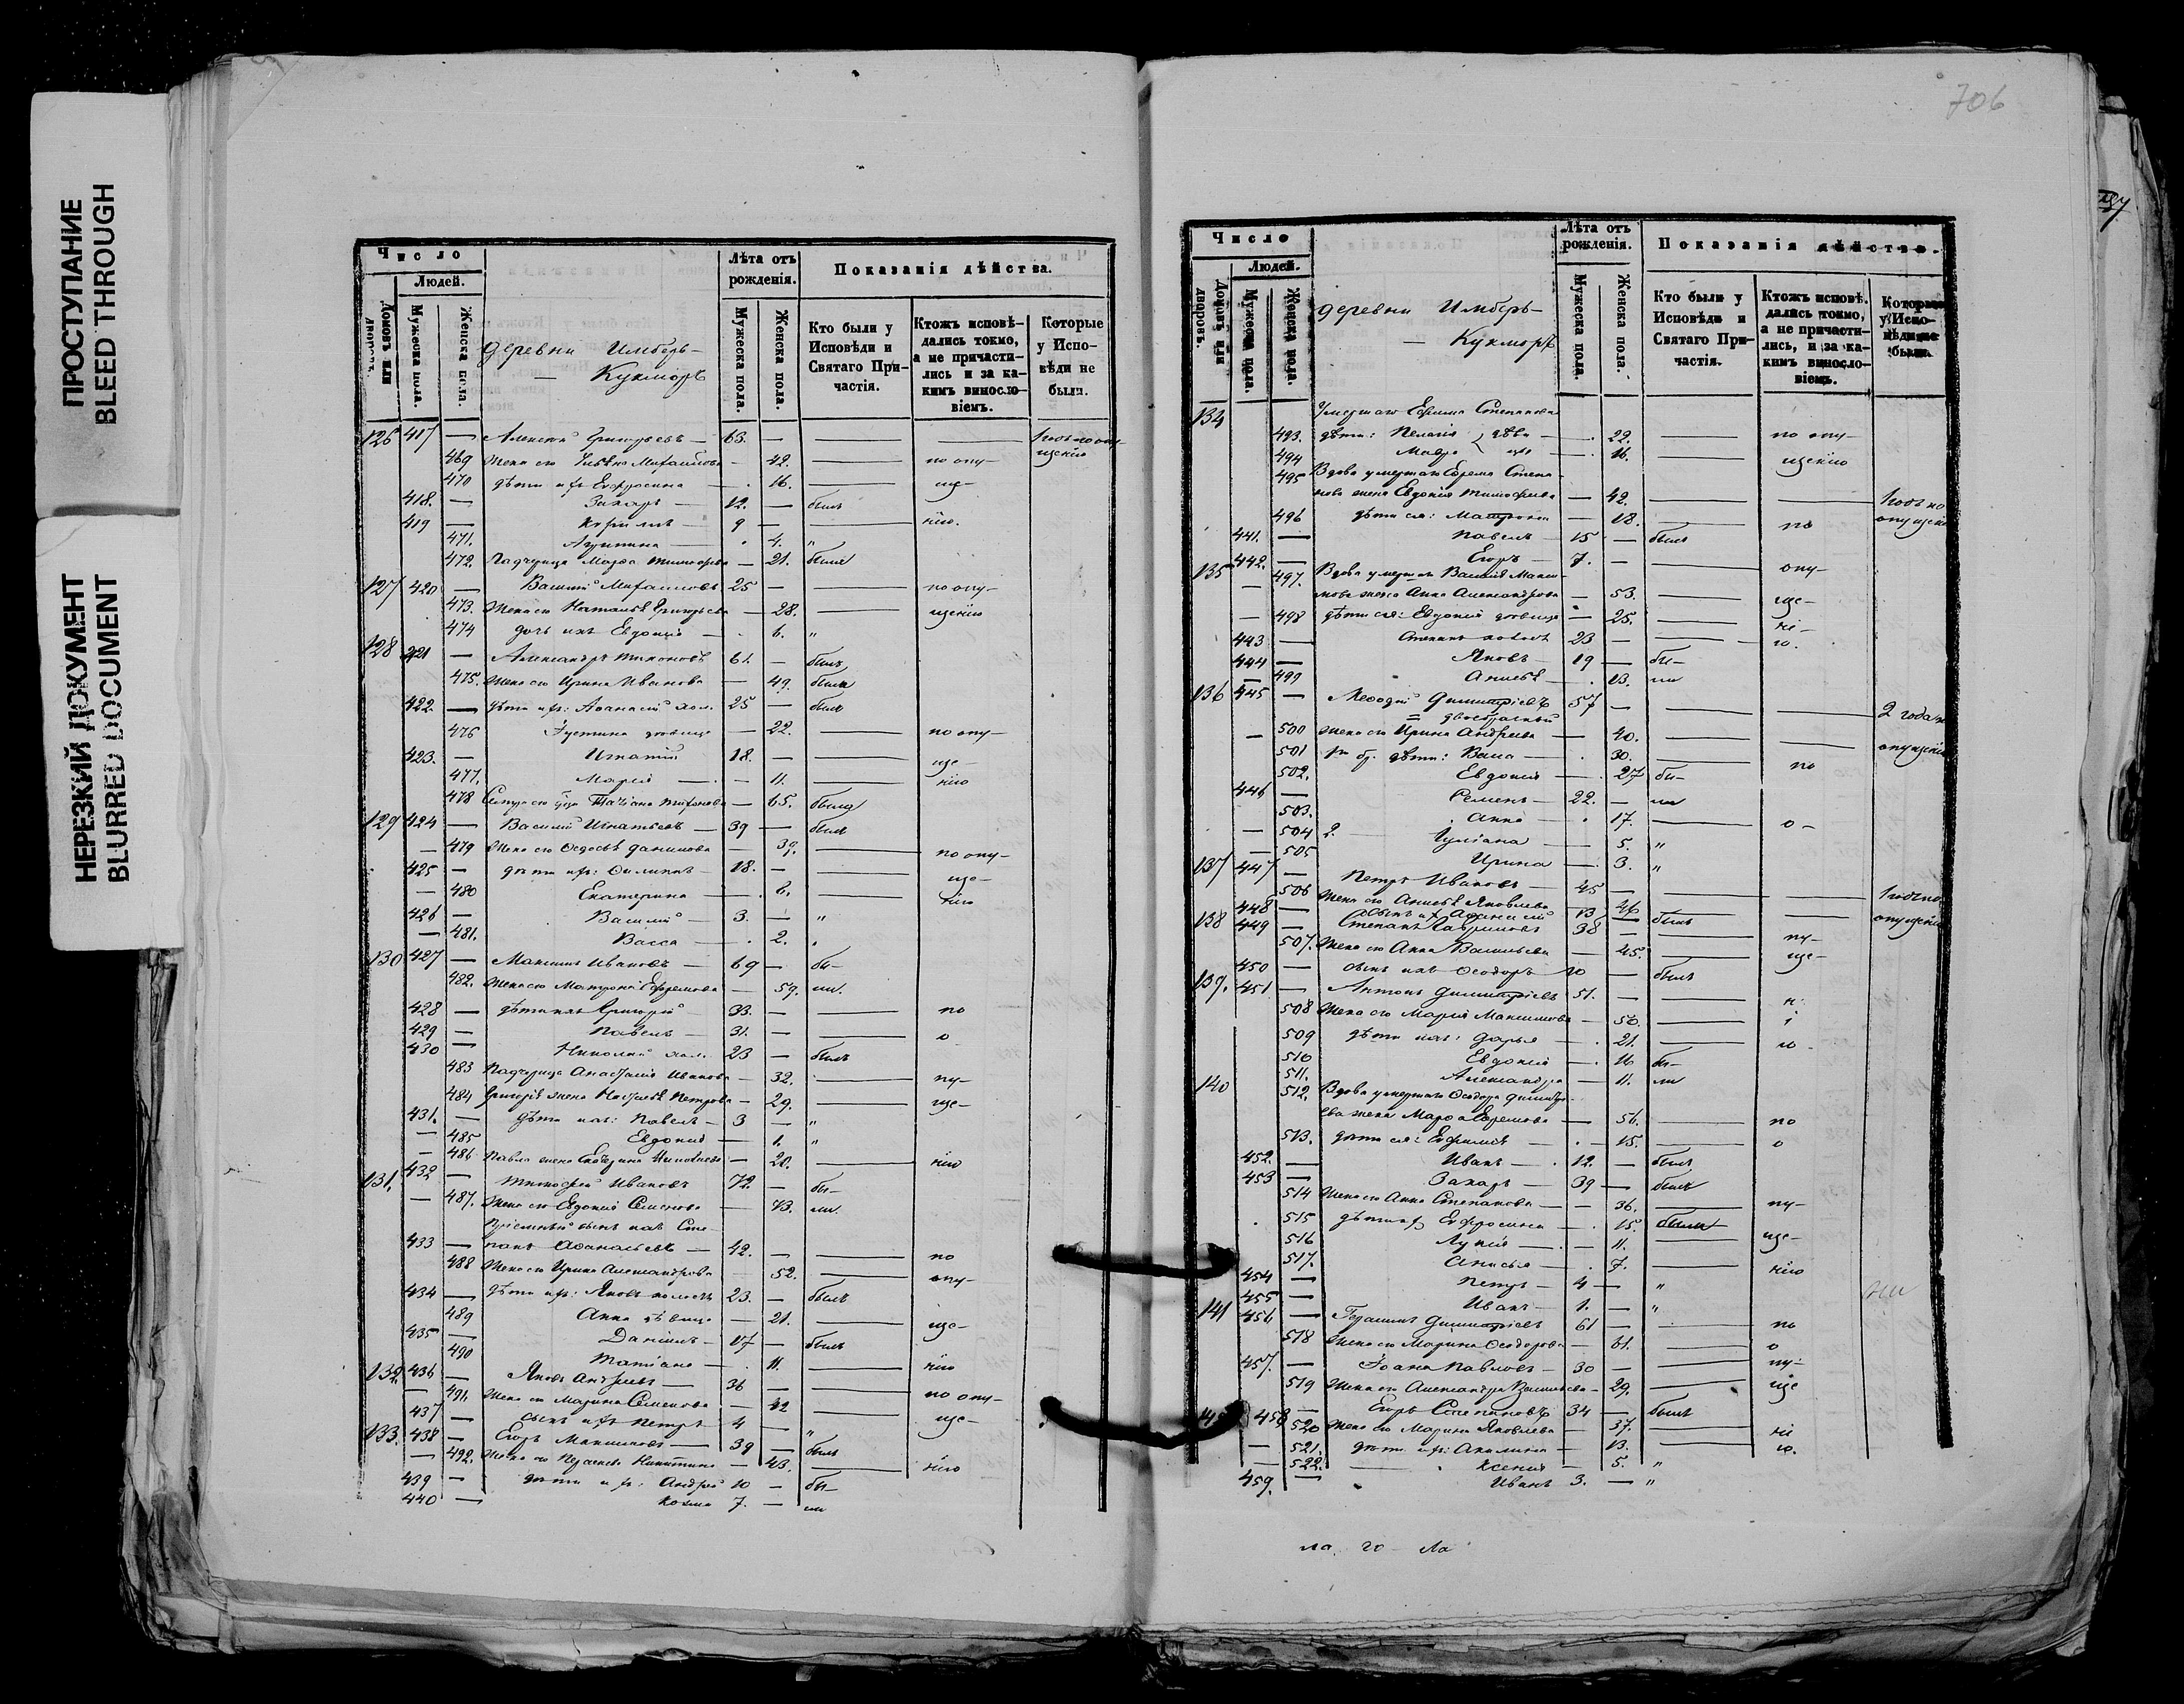 ПРОСТУПАНИЕ
BLEED THROUGH
НЕРЕЗКИЙ ДОКУМЕНТ
BLURRED DOCUMENT
Число
Людей.
Домовъ или дворовъ.
Мужеска пола.
Женска пола.
деревни Имберь-
Кукморъ
Лѣта отъ рожденія.
Мужеска пола.
Женска пола.
Показанія дѣйства.
Кто были у Исповѣди и Святаго Причастія.
Ктожъ исповѣдались токмо, а не причастились и за какимъ винословіемъ.
Которые у Исповѣди не были.
126 417 — Алексѣй Григорьевъ — 63. —
469 Жена его Михайлова — 42. — по опу-
470 дѣти ихъ Евфросинія — 16. — ще-
418. — Захаръ — 12. — былъ
419 — Кириллъ — 9 — нію.
471. Агрипина — 4. "
472. Падчерица Марѳа Тимофѣева — 21. была
127 420 — Василій Михайловъ 25 — по опу-
473. Жена его Наталья Григорьева — 28. щенію
474 дочь ихъ Евдокія — 6. "
128 421 — Александръ Тихоновъ 61. — былъ
475. Жена его Ирина Иванова — 49. была
422. — дѣти ихъ: Аѳанасій хол. 25 — былъ
476 Іустина дѣвица — 22. — по опу-
423. — Игнатій 18. — ще-
477. Марія — 11. нію
478 Татіана Тихонова — 65. была
129 424 — Василій Игнатьевъ — 39 — былъ
479 Жена его Ѳедосья Данилова — 39. — по опу-
425 — дѣти ихъ: Филиппъ — 18. — ще-
480 Екатерина — 6. нію
426 — Василій — 3. — "
481. Васса — 2. "
130 427 — Максимъ Ивановъ — 69 — бы-
482. Жена его Матрона Ефремова — 59. ли.
428 — дѣти ихъ Григорій 33. — по
429 — Павелъ — 31. — о
430 — Николай хол. 23 — былъ
483 Падчерица Анастасія Иванова — 32. — пу-
484 Григорія жена Наталья Петрова — 29. — ще-
431. — дѣти ихъ: Павелъ — 3 — "
485 Евдокія — 1. "
486 Павла жена Екатерина — 20. — нію
131. 432 — Тимофей Ивановъ 72. — бы-
487. Жена его Евдокія Семенова — 73. ли.
Пріемный сынъ ихъ Сте-
433 — панъ Аѳанасьевъ — 42. — по
488 Жена его Ирина Александрова 52. — опу-
434 — дѣти ихъ: Яковъ холостъ 23. — былъ
489 Анна дѣвица — 21. — ще-
435 — Даніилъ — 17 — былъ
490 Татіана — 11. — нію
132. 436 — Яковъ Андреевъ — 36 —
491. Жена его Марина Семенова — 42 — по опу-
437 — сынъ ихъ Петръ 4 — " ще-
133. 438 — Егоръ Максимовъ — 39 — былъ
492. Жена его Никитина — 43. — нію
439 — дѣти ихъ: Андрей 10 — бы-
440 — Козма 7. — ли
706
Число
Людей.
Домовъ или дворовъ.
Мужеска пола.
Женска пола.
деревни Имберь-
Кукморъ
Лѣта отъ рожденія.
Мужеска пола.
Женска пола.
Показанія дѣйства.
Кто были у Исповѣди и Святаго Причастія.
Ктожъ исповѣдались токмо, а не причастились, и за какимъ винословіемъ.
Которые у Исповѣди не были.
134 Умершаго Ефима Степанова
493. дѣти: Пелагія — 22. — по опу-
494 Мавра — 16. — щенію
495 Вдова умершаго Ефрема Степа-
нова жена Евдокія Тимофѣева — 42. —
496 дѣти ея: Матрона — 18. — по
441. — Павелъ — 15 — былъ
442. — Егоръ — 7. — опу-
135 497. Вдова умершаго Василія Макси-
мова жена Анна Александрова — 53. — ще-
498 дѣти ея: Евдокія дѣвица — 25. — ні-
443 — Степанъ холостъ 23 — ю.
444 — Яковъ — 19 — бы-
499 Анисья — 13. ли
136 445 — Меѳодій Димитріевъ 57 — 2 года по
двоебрачный
500 Жена его Ирина Андреева — 40. — опущенію
501 1го бр. дѣти: Васса — 30. — по
502. Евдокія — 27 бы-
446 Семенъ — 22. — ли
503. Анна — 17. — о-
504 2. Іуліана — 5. "
505 Ирина — 3. "
137 447 — Петръ Ивановъ — 45 —
506 Жена его Анисья Яковлева 46
448 — сынъ ихъ Аѳанасій 13 — былъ
138 449 — Степанъ Гавриловъ 38 — пу-
507. Жена его Анна Васильева — 45. — ще-
450 — сынъ ихъ Ѳеодоръ 10 — былъ
139. 451 — Антонъ Димитріевъ 51. — н
508 Жена его Марія Максимова — 50. — і
509 дѣти ихъ: Дарья — 21. — ю
510 Евдокія — 16 бы-
511. Александра — 11. ли
140 512. Вдова умершаго Ѳеодора Димитрі-
ева жена Марѳа Ефремова — 56. — по
513. дѣти ея: Евфимія — 15. — о
452. — Иванъ — 12. — былъ
453 — Захаръ — 39 — былъ
514 Жена его Анна Степанова — 36. — пу-
515 дѣти ихъ Евфросинія — 15. была
516 Лукія — 11. — ще-
517. Анисья — 7. — нію
454 — Петръ — 4 — "
455 — Иванъ — 1. — "
141 456 — Герасимъ Димитріевъ 61 — по
518 Жена его Марина Ѳеодорова — 61. — о
457. — Іоаннъ Павловъ — 30 — пу-
519 Жена его Александра Васильева — 29. — ще
458 — Егоръ Степановъ 34 — былъ
520 Жена его Марина Яковлева — 37. — ні
521. дѣти ихъ: Акилина — 13. — ю.
522. Ксенія — 5. "
459. — Иванъ 3. — "